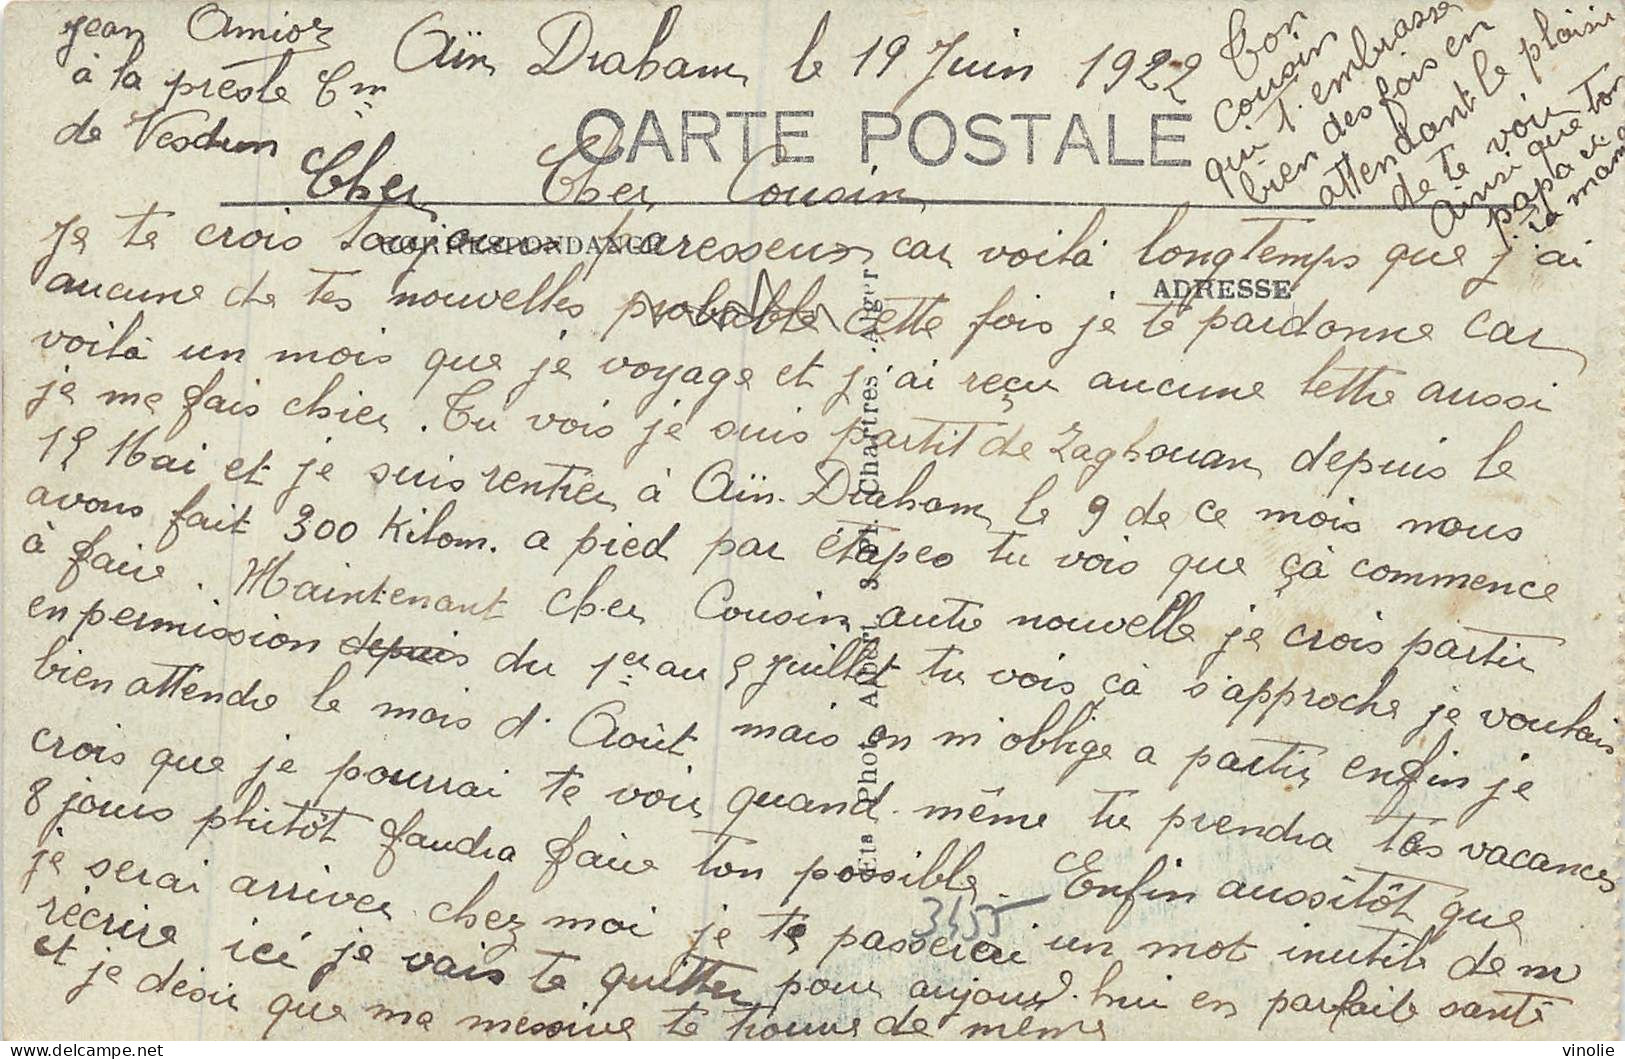 Jean Amior
à la presle Cm
de Vesdun
Aïn Draham le 19 Juin 1922
CARTE POSTALE
Cher Cher Cousin
CORRESPONDANCE
ADRESSE
Je te crois toujours paresseux car voilà longtemps que j'ai
aucune de tes nouvelles probable cette fois je te pardonne car
voilà un mois que je voyage et j'ai reçu aucune lettre aussi
je me fais chier. Tu vois je suis partit de Zaghouan depuis le
15 Mai et je suis rentrer à Aïn-Draham le 9 de ce mois nous
avons fait 300 Kilom. a pied par étapes tu vois que çà commence
à faire. Maintenant cher Cousin autre nouvelle je crois partir
en permission depuis du 1er au 5 juillet tu vois çà s'approche je voulais
bien attendre le mois d'Août mais on m'oblige a partir enfin je
crois que je pourrai te voir quand-même tu prendra tes vacances
8 jours plutôt faudra faire ton possible. Enfin aussitôt que
je serai arriver chez moi je te passerai un mot inutile de m
récrire ici je vais te quitter pour aujourd'hui en parfaite santé
et je désir que ma messive te trouve de même
Ton
cousin
qui t'embrasse
bien des fois en
attendant le plaisir
de te voir
Ainsi que ton
papa et
ta maman
Ets Photo Albert, S. Pl. Chartres. Alger
3455
vinolie